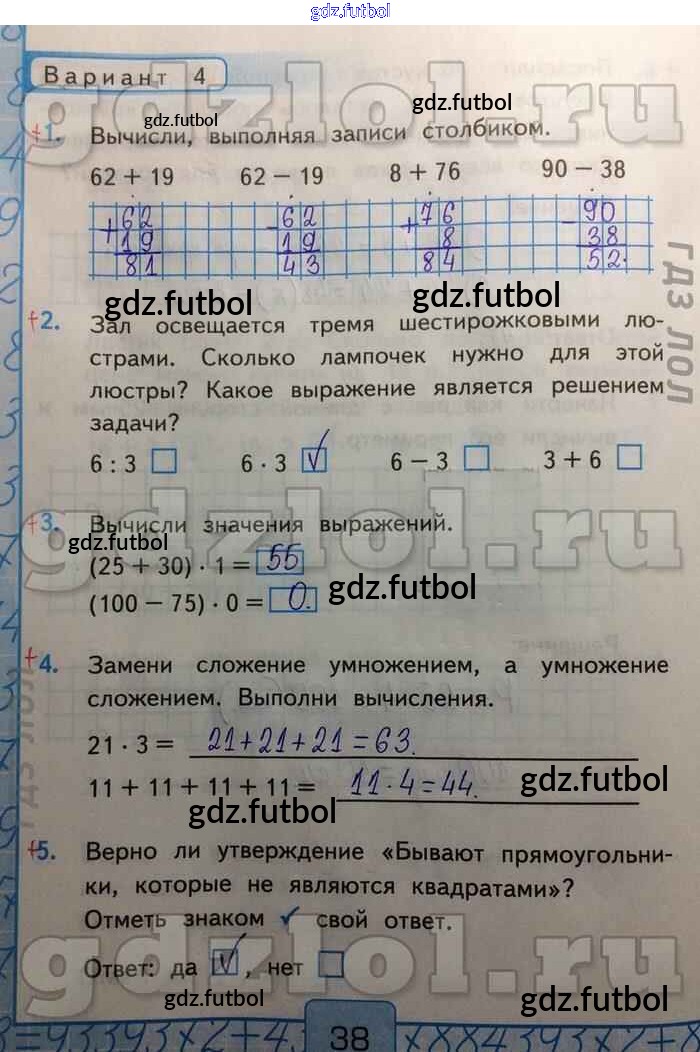 gdz.futbol
Вариант 4
gdzlol.ru
gdz.futbol
gdz.futbol
1. Вычисли, выполняя записи столбиком.
62 + 19 62 − 19 8 + 76 90 − 38
+62 −62 +76 −90
19 19 8 38
81 43 84 52.
gdz.futbol
gdz.futbol
ГДЗ ЛОЛ
2. Зал освещается тремя шестирожковыми лю-
страми. Сколько лампочек нужно для этой
люстры? Какое выражение является решением
задачи?
6 : 3 6 · 3 V 6 − 3 3 + 6
gdzlol.ru
3. Вычисли значения выражений.
gdz.futbol
(25 + 30) · 1 = 55
(100 − 75) · 0 = 0.
gdz.futbol
4. Замени сложение умножением, а умножение
сложением. Выполни вычисления.
ГДЗ ЛОЛ
21 · 3 = 21+21+21=63.
11 + 11 + 11 + 11 = 11·4=44.
gdz.futbol
gdz.futbol
5. Верно ли утверждение «Бывают прямоугольни-
ки, которые не являются квадратами»?
Отметь знаком ✓ свой ответ.
gdzlol.ru
Ответ: да V, нет
gdz.futbol
gdz.futbol
38